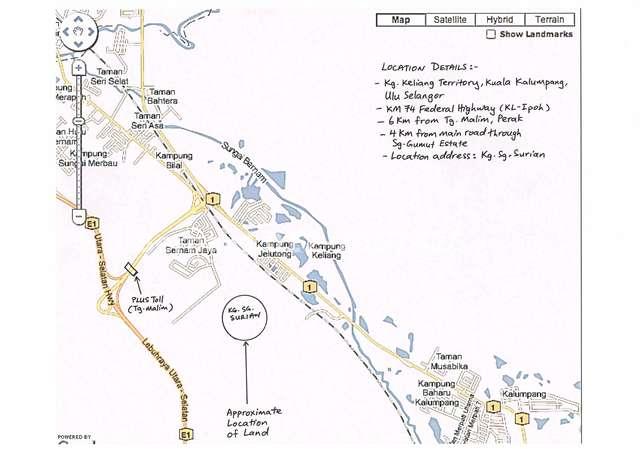 Map Satellite Hybrid Terrain
Show Landmarks
Taman
Seri Selat
Taman
Bahtera
Taman
Seri Asa
Kampung
Sungai Merbau
Kampung
Bilal
Sungai Bernam
1
E1
Utara - Selatan Hwy
Taman
Bernam Jaya
Kampung
Jelutong
Kampung
Keliang
1
PLUS Toll
(Tg. Malim)
KG. SG.
SURIAN
Lebuhraya Utara - Selatan
E1
Approximate
Location
of Land
Taman
Musabika
Kampung
Baharu
Kalumpang
Kalumpang
1
1
LOCATION DETAILS:-
- Kg. Keliang Territory, Kuala Kalumpang,
Ulu Selangor
- KM 74 Federal Highway (KL-Ipoh)
- 6 Km from Tg. Malim, Perak
- 4 KM from main road through
Sg-Gumut Estate
- Location address: Kg. Sg. Surian
POWERED BY